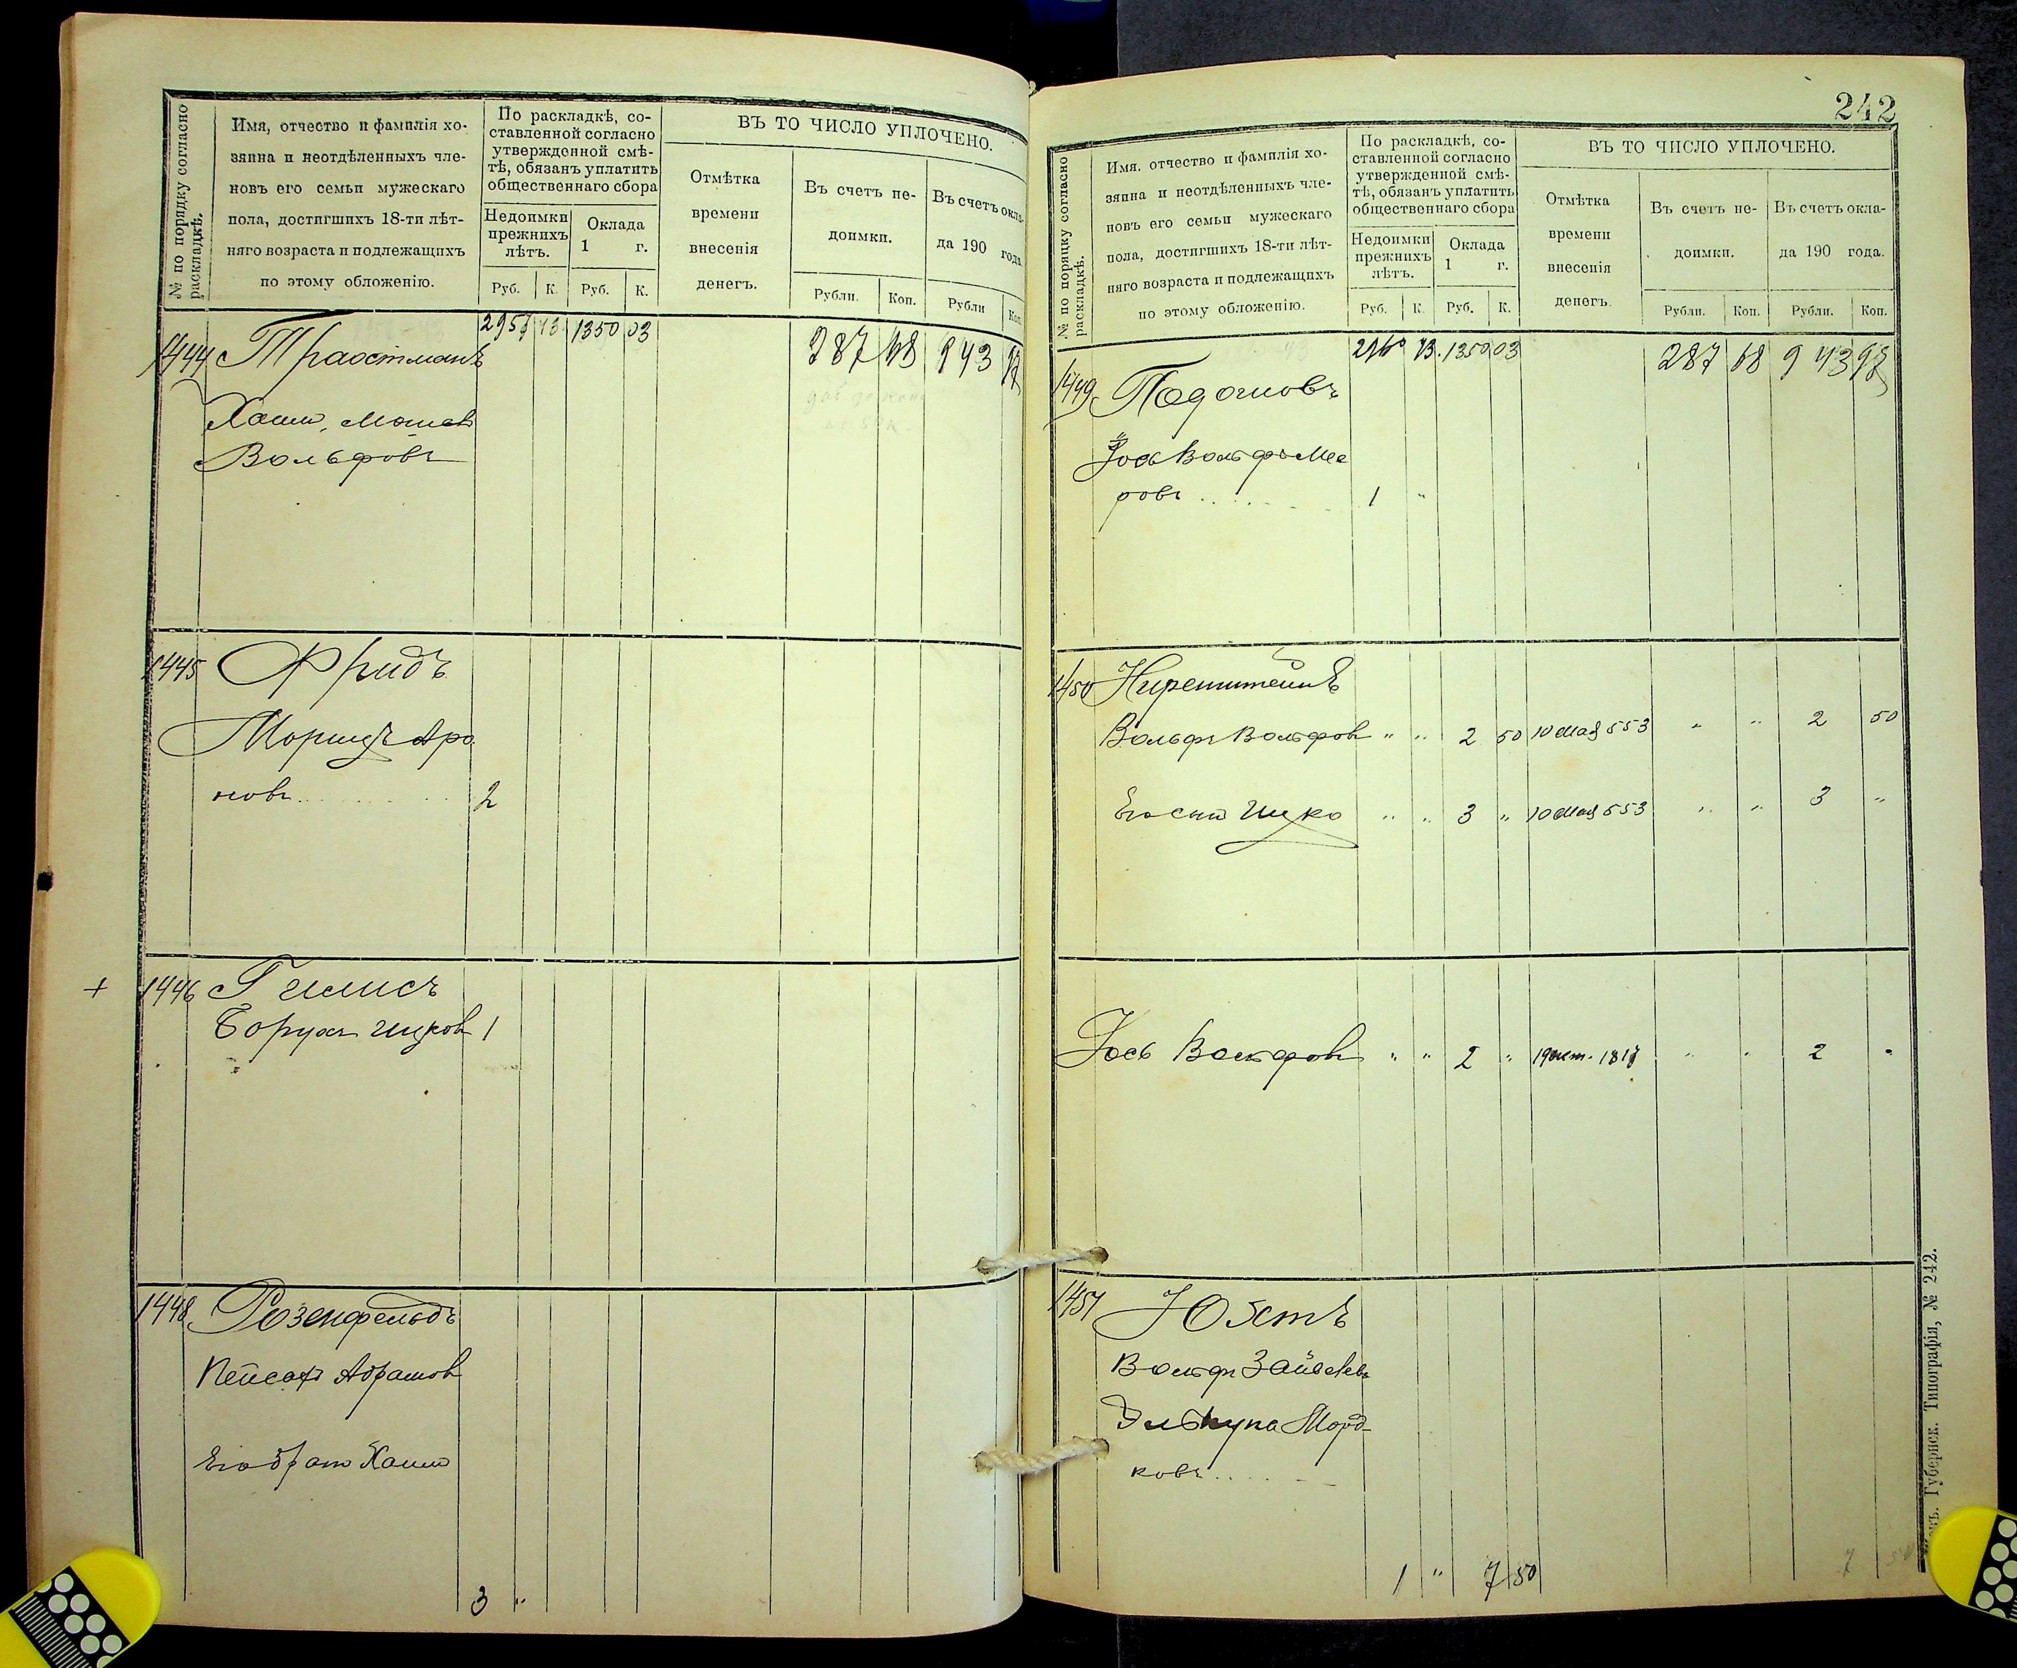 № по порядку согласно раскладкѣ.
Имя, отчество и фамилія хо-
зяина и неотдѣленныхъ чле-
новъ его семьи мужескаго
пола, достигшихъ 18-ти лѣт-
няго возраста и подлежащихъ
по этому обложенію.
По раскладкѣ, со-
ставленной согласно
утвержденной смѣ-
тѣ, обязанъ уплатить
общественнаго сбора
Недоимки прежнихъ лѣтъ.
Оклада 1 г.
Руб. К. Руб. К.
ВЪ ТО ЧИСЛО УПЛОЧЕНО.
Отмѣтка
времени
внесенія
денегъ.
Въ счетъ не-
доимки.
Въ счетъ окла-
да 190 года
Рубли. Коп. Рубли Коп.
1350 03
287 68 943
1444 Траостманъ
Хаимъ, Мошев
Вольфовъ
1445 Фридъ
Морицъ Аро
новъ 2
+ 1446 Гелисъ
Борухъ Ицков 1
1448 Розенфельдъ
Пейсахъ Абрамов
Его братъ Хаимъ
3 "
242
№ по порядку согласно раскладкѣ.
Имя, отчество и фамилія хо-
зяина и неотдѣленныхъ чле-
новъ его семьи мужескаго
пола, достигшихъ 18-ти лѣт-
няго возраста и подлежащихъ
по этому обложенію.
По раскладкѣ, со-
ставленной согласно
утвержденной смѣ-
тѣ, обязанъ уплатить
общественнаго сбора
Недоимки прежнихъ лѣтъ.
Оклада 1 г.
Руб. К. Руб. К.
ВЪ ТО ЧИСЛО УПЛОЧЕНО.
Отмѣтка
времени
внесенія
денегъ.
Въ счетъ не-
доимки.
Въ счетъ окла-
да 190 года.
Рубли. Коп. Рубли. Коп.
13 1350 03 287 68 943 97
1449
Іось Вольфъ Ме
ровъ 1 "
1450 Ниренштейнъ
Вольфъ Вольфов " " 2 50 10 Мая 553 " " 2 50
Его сынъ Ицко " " 3 " 10 Мая 553 " " 3 "
Іось Вольфовъ " " 2 " 19 " " 2 "
1451
Вольфъ
Элькуна Морд-
ковъ
1 " 7 50
7 50
Губернск. Типографія, № 242.